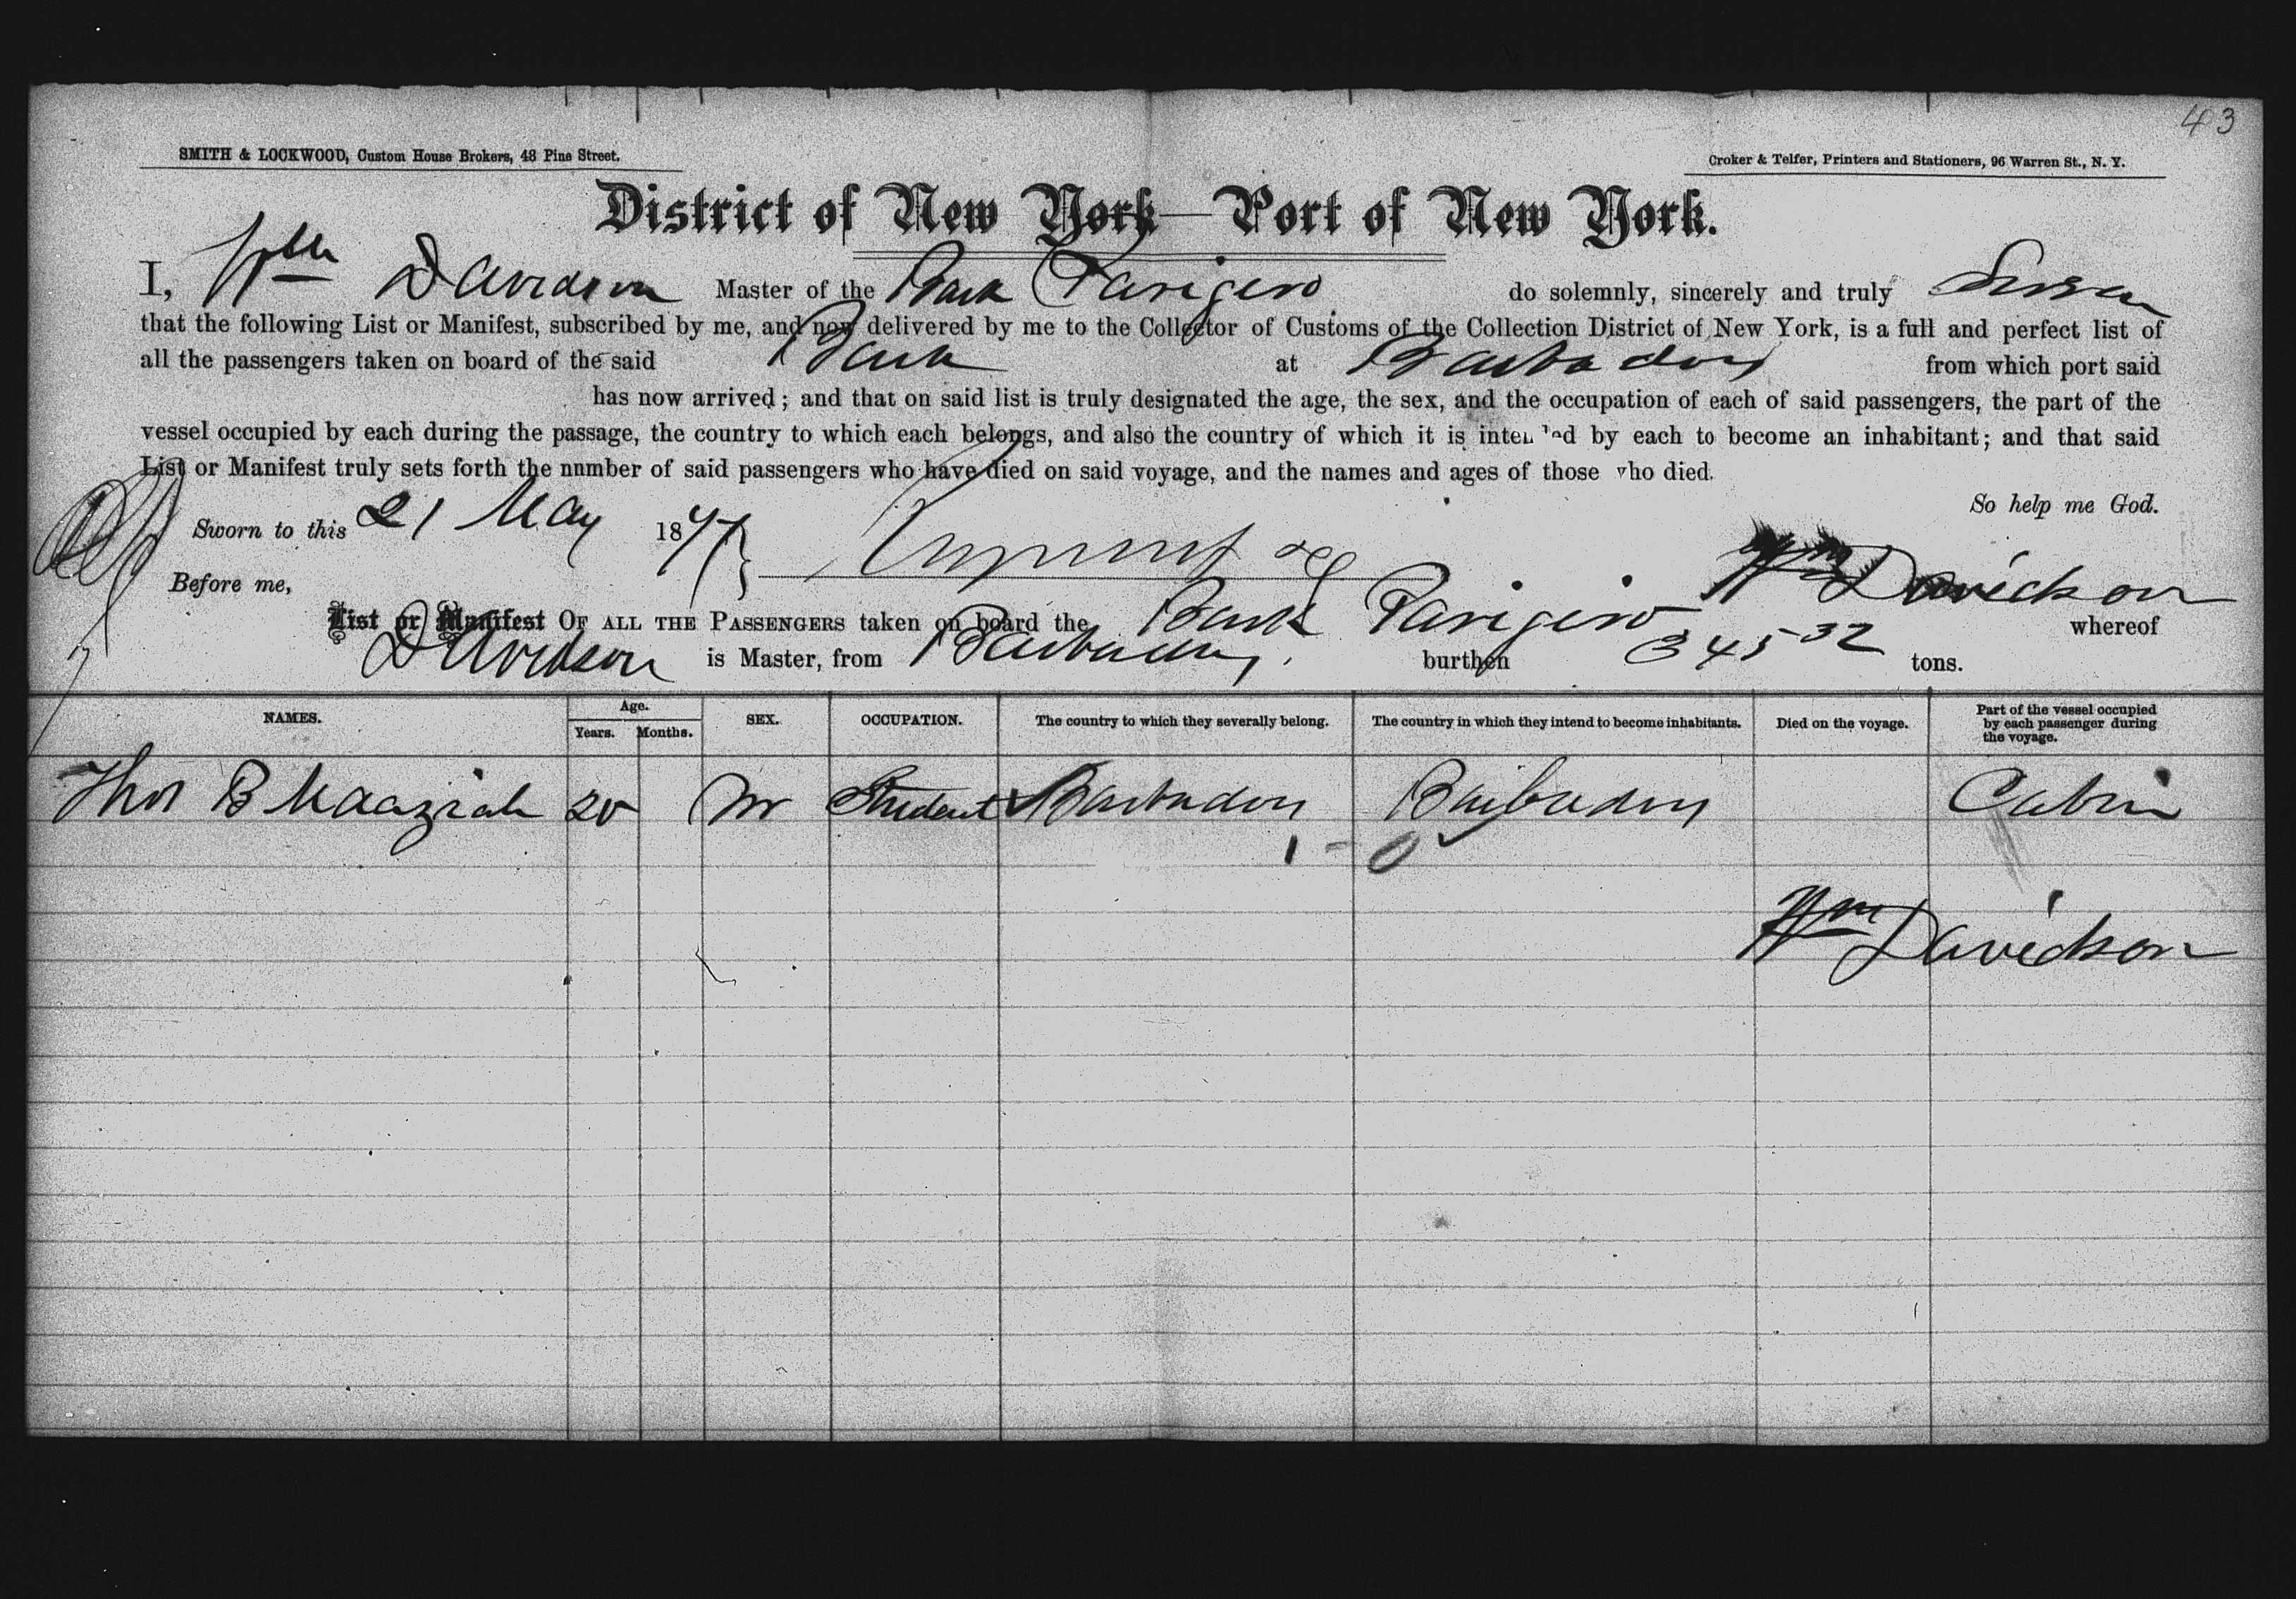 43
SMITH & LOCKWOOD, Custom House Brokers, 48 Pine Street.
Croker & Telfer, Printers and Stationers, 96 Warren St., N. Y.
District of New York—Port of New York.
I, Wm Davidson Master of the Bark do solemnly, sincerely and truly Swear
that the following List or Manifest, subscribed by me, and now delivered by me to the Collector of Customs of the Collection District of New York, is a full and perfect list of
all the passengers taken on board of the said Bark at Barbados from which port said
has now arrived; and that on said list is truly designated the age, the sex, and the occupation of each of said passengers, the part of the
vessel occupied by each during the passage, the country to which each belongs, and also the country of which it is intended by each to become an inhabitant; and that said
List or Manifest truly sets forth the number of said passengers who have died on said voyage, and the names and ages of those who died.
So help me God.
Sworn to this 21 May 1877
Wm Davidson
Before me,
List or Manifest OF ALL THE PASSENGERS taken on board the Bark whereof
Davidson is Master, from Barbados burthen 345 32 tons.
NAMES. Age. Years. Months. SEX. OCCUPATION. The country to which they severally belong. The country in which they intend to become inhabitants. Died on the voyage. Part of the vessel occupied by each passenger during the voyage.
Thos B 20 m Student Barbados Barbados Cabin
1 - 0
Wm Davidson